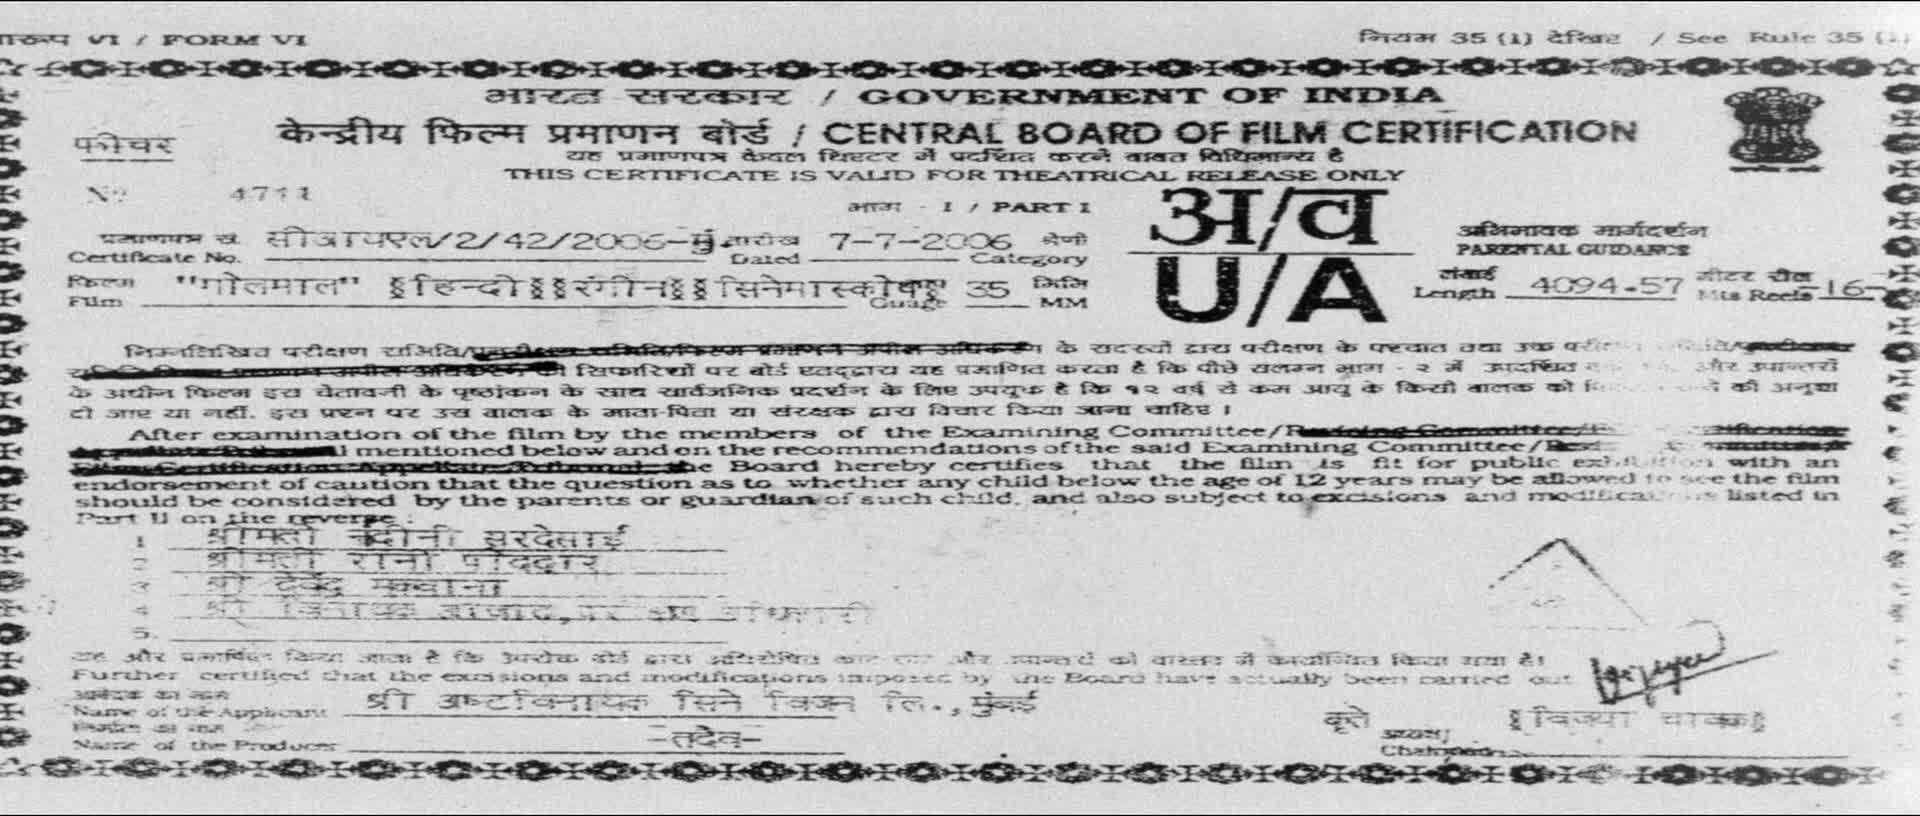 VI / FORM VI
नियम 35 (1) देखिए / See Rule 35 (1)
भारत सरकार / GOVERNMENT OF INDIA
फीचर
केन्द्रीय फिल्म प्रमाणन बोर्ड / CENTRAL BOARD OF FILM CERTIFICATION
यह प्रमाणपत्र केवल थिएटर में प्रदर्शित करने बाबत विधिमान्य है
THIS CERTIFICATE IS VALID FOR THEATRICAL RELEASE ONLY
Nº 4711
भाग - I / PART I
अ/व
U/A
प्रमाणपत्र सं. सीआयएल/2/42/2006-मुं. तारीख 7-7-2006 श्रेणी
Certificate No. Dated Category
अभिभावक मार्गदर्शन
PARENTAL GUIDANCE
फिल्म "गोलमाल" हिन्दी रंगीन सिनेमास्कोप 35 मिमि
Film Guage MM
लंबाई 4094.57 मीटर रील 16
Length Mts Reels
निम्नलिखित परीक्षण समिति/ के सदस्यों द्वारा परीक्षण के पश्चात तथा उक्त
सिफारिशों पर बोर्ड एतद्द्वारा यह प्रमाणित करता है कि पीछे संलग्न भाग - २ में उपदर्शित और उपान्तरों
के अधीन फिल्म इस चेतावनी के पृष्ठांकन के साथ सार्वजनिक प्रदर्शन के लिए उपयुक्त है कि १२ वर्ष से कम आयु के किसी बालक को की अनुज्ञा
दी जाए या नहीं. इस प्रश्न पर उस बालक के माता-पिता या संरक्षक द्वारा विचार किया जाना चाहिए ।
After examination of the film by the members of the Examining Committee/
mentioned below and on the recommendations of the said Examining Committee/
the Board hereby certifies that the film is fit for public exhibition with an
endorsement of caution that the question as to whether any child below the age of 12 years may be allowed to see the film
should be considered by the parents or guardian of such child, and also subject to excisions and modifications listed in
Part II on the reverse :
1 श्रीमती नंदीनी सरदेसाई
2 श्रीमती रानी पोद्दार
3 श्री देवेंद्र मकवाना
4 श्री विनायक आजाद,
5.
यह और प्रमाणित किया जाता है कि उपरोक्त बोर्ड द्वारा अधिरोपित और उपान्तरों को वास्तव में कार्यान्वित किया गया है।
Further certified that the excisions and modifications imposed by the Board have actually been carried out
आवेदक का नाम श्री अष्टविनायक सिने विजन लि., मुंबई
Name of the Applicant
कृते विजया चावक
निर्माता का नाम -तदैव-
Name of the Producer
अध्यक्ष/
Chairperson